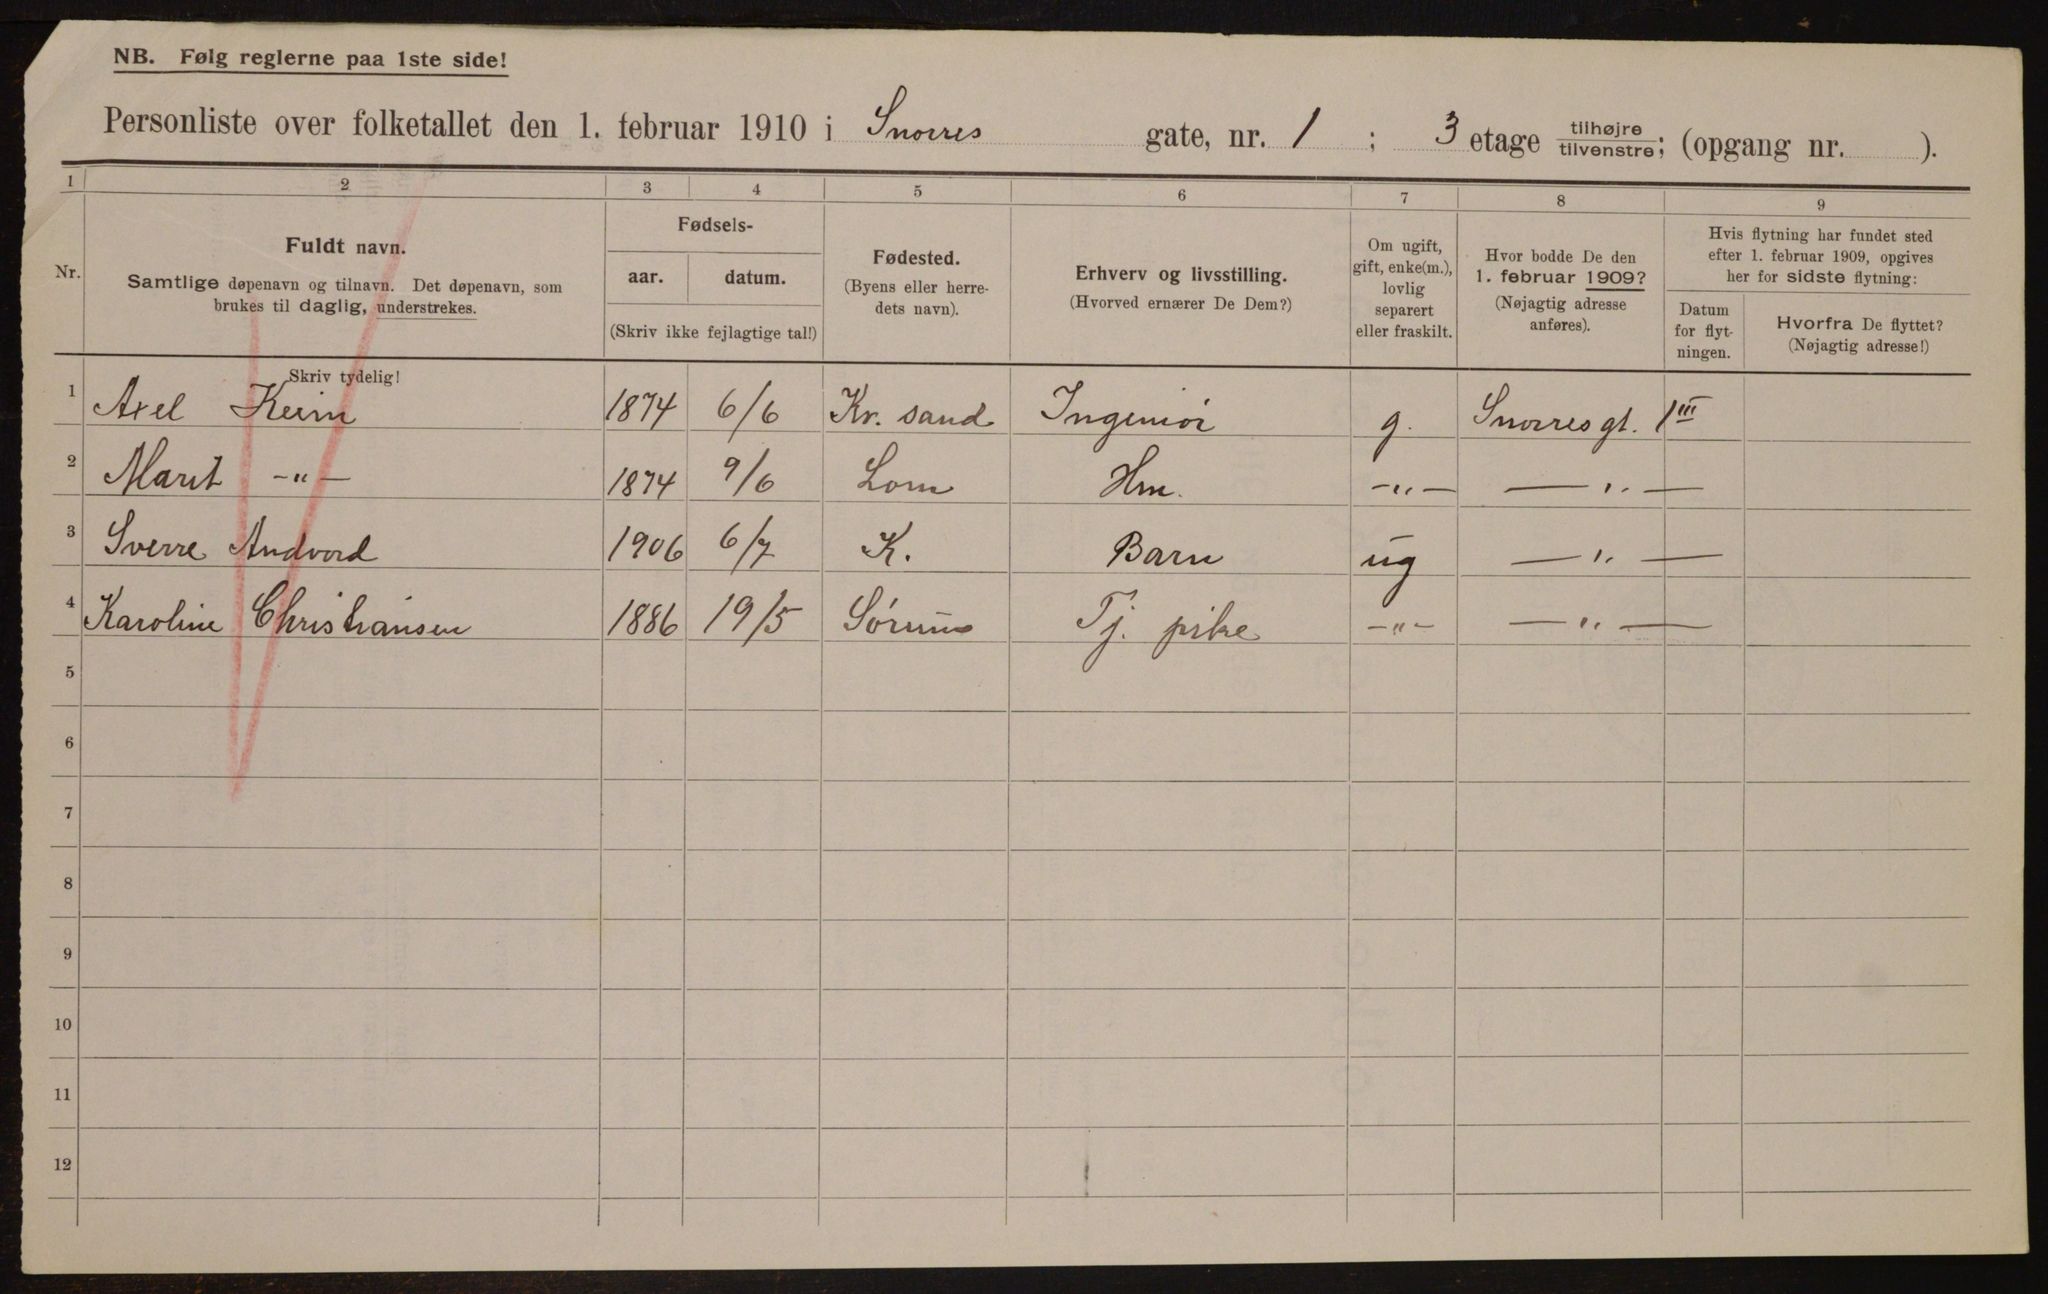 NB. Følg reglerne paa 1ste side!
Personliste over folketallet den 1. februar 1910 i Snorres gate, nr. 1 ; 3 etage tilhøjre tilvenstre; (opgang nr. ).
1 2 3 4 5 6 7 8 9
Nr.
Fuldt navn.
Samtlige døpenavn og tilnavn. Det døpenavn, som
brukes til daglig, understrekes.
Fødsels-
aar. datum.
(Skriv ikke fejlagtige tal!)
Fødested.
(Byens eller herre-
dets navn).
Erhverv og livsstilling.
(Hvorved ernærer De Dem?)
Om ugift,
gift, enke(m.),
lovlig
separert
eller fraskilt.
Hvor bodde De den
1. februar 1909?
(Nøjagtig adresse
anføres).
Hvis flytning har fundet sted
efter 1. februar 1909, opgives
her for sidste flytning:
Datum
for flyt-
ningen.
Hvorfra De flyttet?
(Nøjagtig adresse!)
Skriv tydelig!
1 Axel 1874 6/6 Kr. sand Ingeniør g. Snorres gt. 1 III
2 Marit -"- 1874 9/6 Lom Hm. -"- -"-
3 Sverre Andvord 1906 6/7 K. Barn ug -"-
4 Karoline Christiansen 1886 19/5 Sørum Tj. pike -"- -"-
5
6
7
8
9
10
11
12